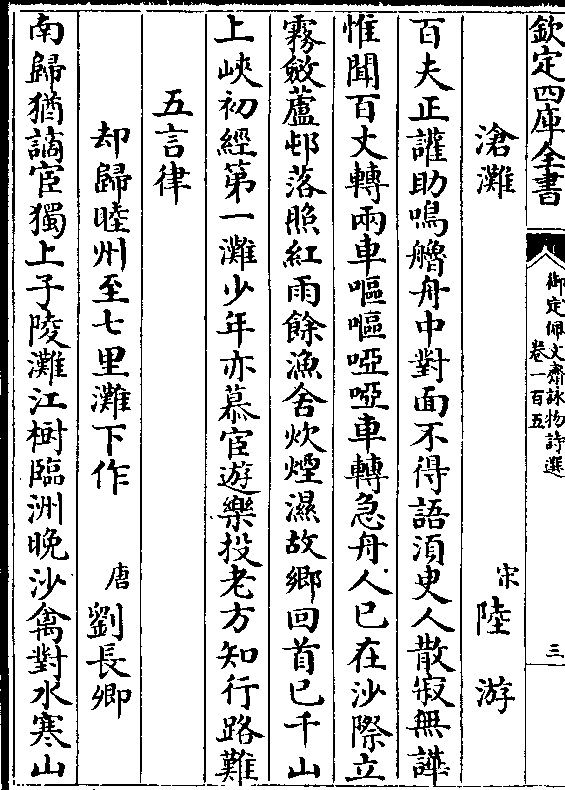 欽定四庫全書
御定佩文齋詠物詩選
卷一百五
三
滄灘
宋
陸游
百夫正讙助鳴艣舟中對面不得語須史人散寂無譁
惟聞百丈轉兩車嘔嘔啞啞車轉急舟人已在沙際立
霧斂蘆邨落照紅雨餘漁舍炊煙濕故鄉回首已千山
上峽初經第一灘少年亦慕宦遊樂投老方知行路難
五言律
却歸睦州至七里灘下作
唐
劉長卿
南歸猶謫宦獨上子陵灘江樹臨洲晚沙禽對水寒山